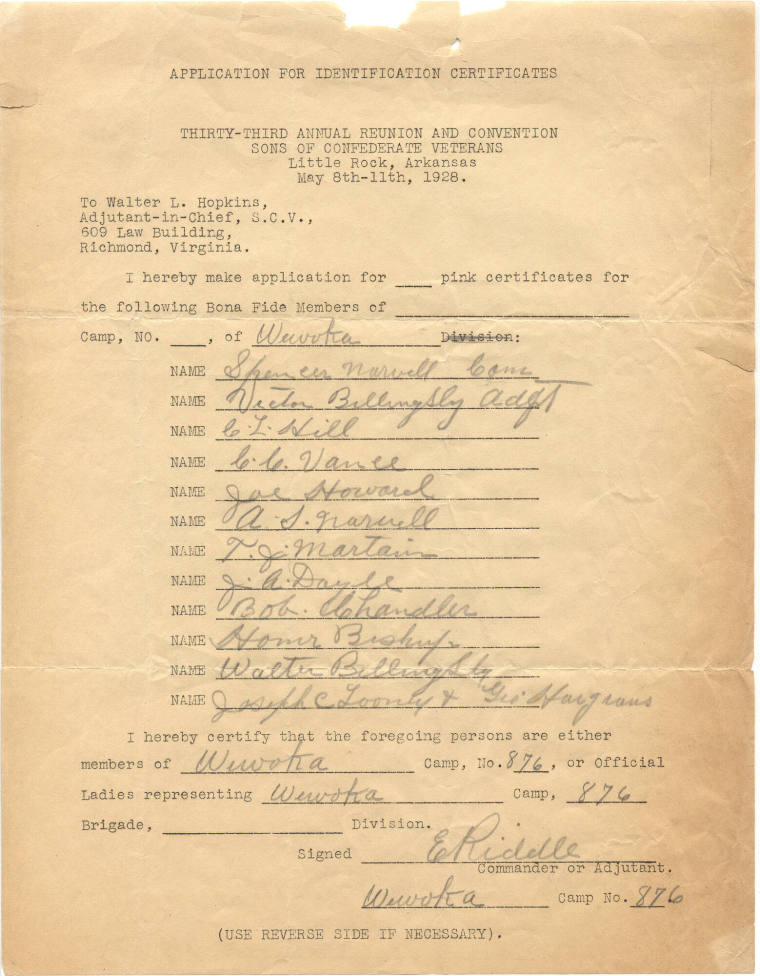 APPLICATION FOR IDENTIFICATION CERTIFICATES
THIRTY-THIRD ANNUAL REUNION AND CONVENTION
SONS OF CONFEDERATE VETERANS
Little Rock, Arkansas
May 8th-11th, 1928.
To Walter L. Hopkins,
Adjutant-in-Chief, S.C.V.,
609 Law Building,
Richmond, Virginia.
I hereby make application for ____ pink certificates for
the following Bona Fide Members of ____
Camp, NO. ____, of Wewoka Division:
NAME Spencer Norvell Com
NAME Victor Billingsly Adjt
NAME C. L. Hill
NAME C. C. Vance
NAME Joe Howard
NAME A. S. Norvell
NAME T. J. Martain
NAME J. A. Doyle
NAME Bob. Chandler
NAME Homr Bishup
NAME Walter Billingsly
NAME Joseph C Looney & Geo Hargraves
I hereby certify that the foregoing persons are either
members of Wewoka Camp, No. 876, or Official
Ladies representing Wewoka Camp, 876
Brigade, ____ Division.
Signed E Riddle
Commander or Adjutant.
Wewoka Camp No. 876
(USE REVERSE SIDE IF NECESSARY).